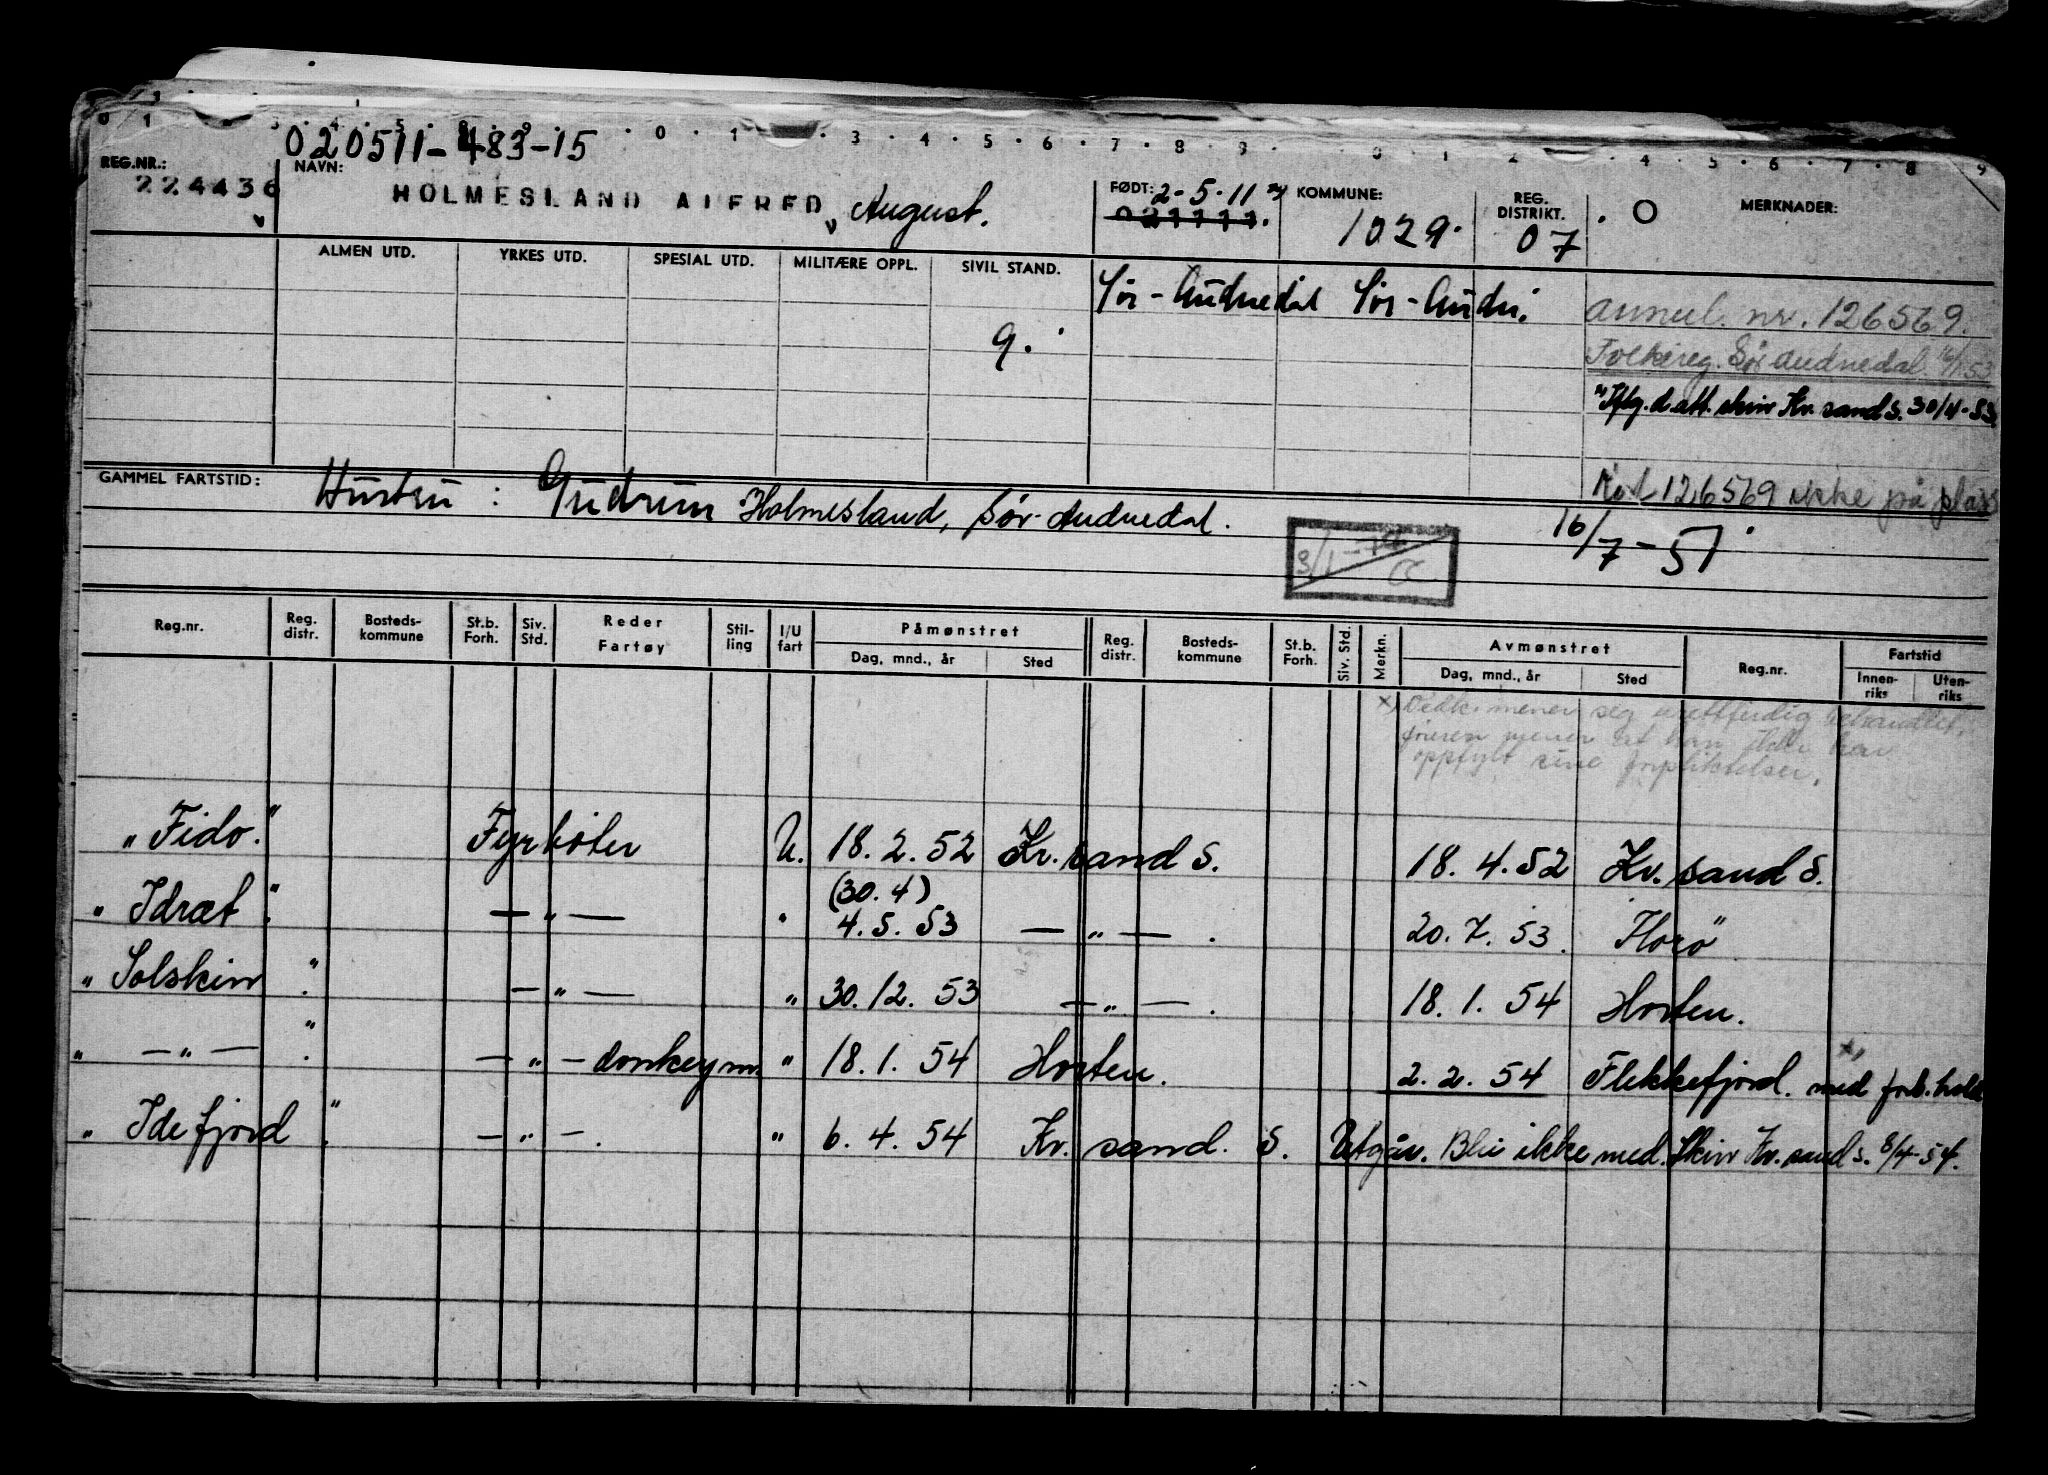 020511-483-15
REG.NR.: 224436 NAVN: HOLMESLAND ALFRED, August. FØDT: 2-5-11 021111. KOMMUNE: 1029. REG. DISTRIKT. 07 . O MERKNADER:
ALMEN UTD. YRKES UTD. SPESIAL UTD. MILITÆRE OPPL. SIVIL STAND.
Sør-Audnedal Sør-Audn. annul. nr. 126569.
g. Folkereg. Sør Audnedal
d. att. skriv Kr. sand S. 30/4-53
GAMMEL FARTSTID: Hustru: Gudrun Holmesland, Sør-Audnedal.
Kort 126569 ikke på plass
16/7-51
3/1-74
Reg.nr. Reg. distr. Bosteds-kommune St.b. Forh. Siv. Std. Reder Fartøy Stil-ling I/U fart Påmønstret Dag, mnd., år Sted Reg. distr. Bosteds-kommune St.b. Forh. Siv. Std. Merkn. Avmønstret Dag, mnd., år Sted Reg.nr. Fartstid Innen-riks Uten-riks
x) Vedk. mener seg urettferdig behandlet,
føreren mener at han ikke har
oppfylt sine forpliktelser.
"Fido." Fyrbøter U. 18.2.52 Kr. sand S. 18.4.52 Kr. sand S.
(30.4)
"Idræt". — " — " 4.5.53 — " — . 20.7.53. Florø
"Solskin". — " — " 30.12.53 — " — . 18.1.54 Horten.
" — " — ". — " — donkeym. " 18.1.54 Horten. 2.2.54 Flekkefjord. med forb.hold x)
"Idefjord". — " —. " 6.4.54 Kr. sand. S. Utgår. Ble ikke med. Skriv Kr. sand S. 8/4-54.